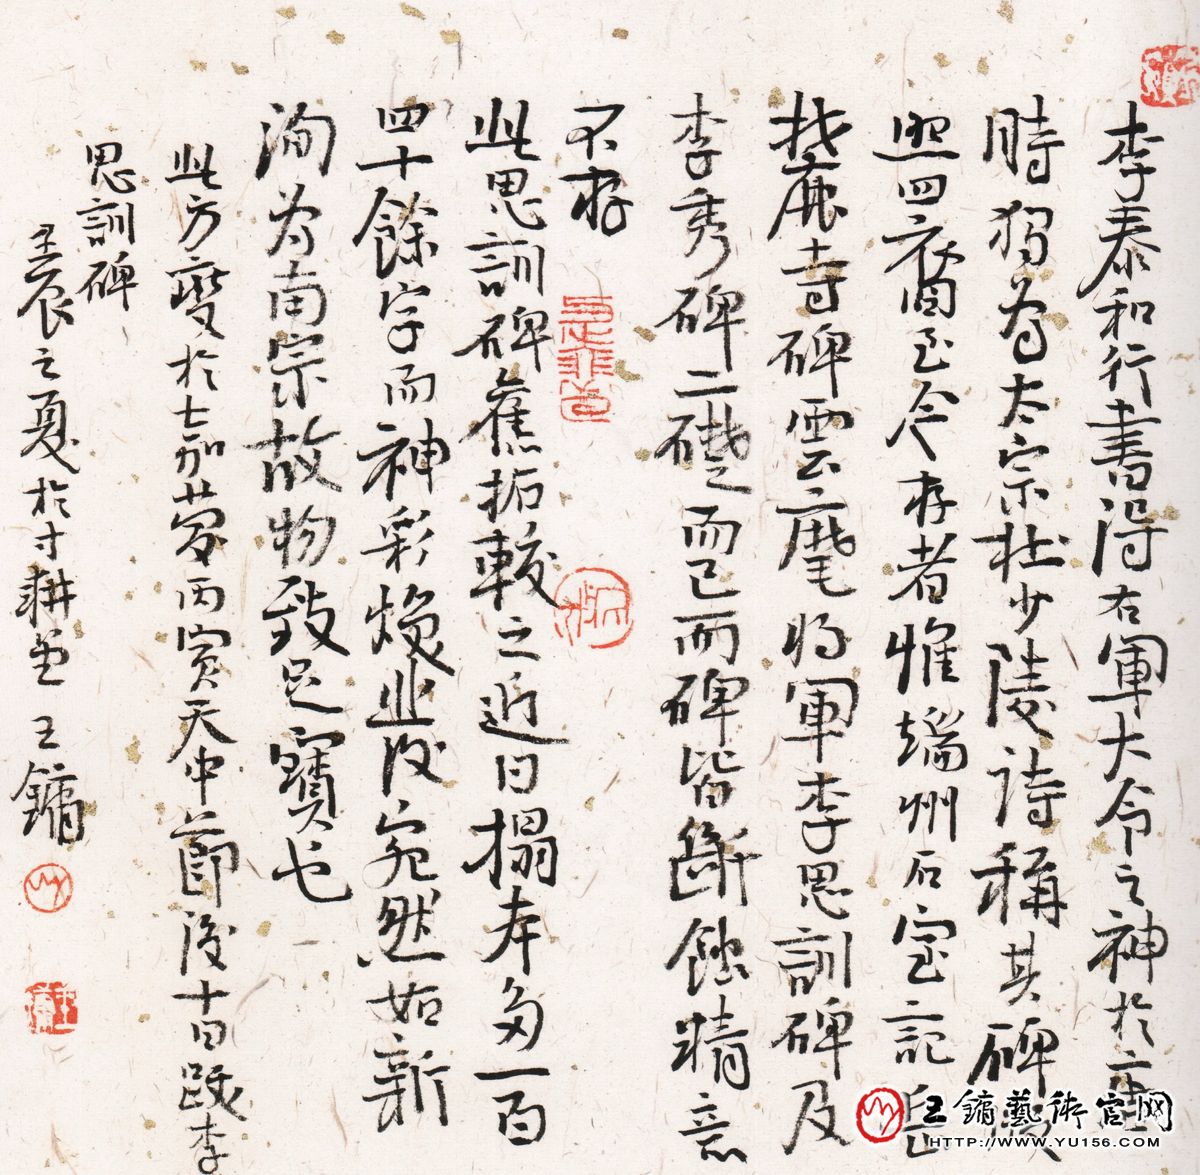 李泰和行書得右軍大令之神於唐
時獨為太宗杜少陵詩稱其碑版
照四裔至今存者惟端州石室記岳
麓寺碑雲麾將軍李思訓碑及
李秀碑二礎而已而碑皆斷蝕精意
不存
此思訓碑舊拓較之近日搨本多一百
四十餘字而神彩煥然宛然如新
洵為南宗故物致足寶也
此方夔於嘉慶丙寅天中節後十日跋李
思訓碑
壬辰之夏於寸耕堂王鏞
王鏞藝術官网
HTTP://WWW.YU156.COM